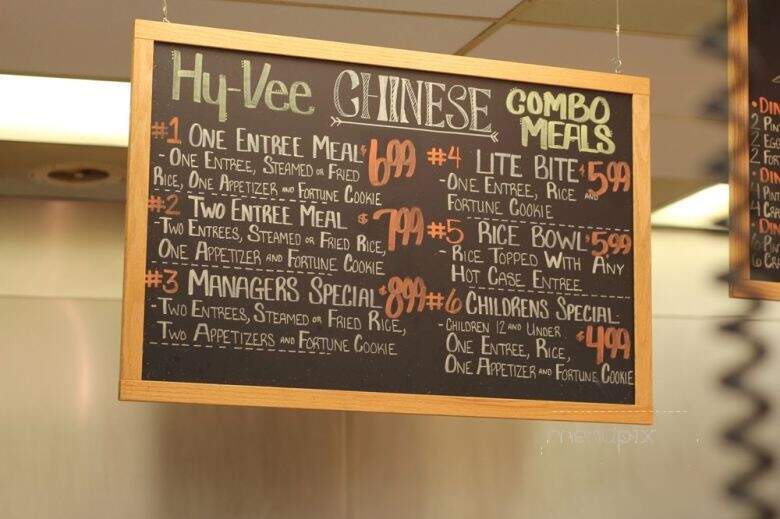 Hy-Vee CHINESE COMBO MEALS
#1 ONE ENTREE MEAL $6.99
- ONE ENTREE, STEAMED OR FRIED
RICE, ONE APPETIZER AND FORTUNE COOKIE
#2 TWO ENTREE MEAL $7.99
- TWO ENTREES, STEAMED OR FRIED RICE,
ONE APPETIZER AND FORTUNE COOKIE
#3 MANAGERS SPECIAL $8.99
- TWO ENTREES, STEAMED OR FRIED RICE,
TWO APPETIZERS AND FORTUNE COOKIE
#4 LITE BITE $5.99
- ONE ENTREE, RICE AND
FORTUNE COOKIE
#5 RICE BOWL $5.99
- RICE TOPPED WITH ANY
HOT CASE ENTREE
#6 CHILDRENS SPECIAL
- CHILDREN 12 AND UNDER $4.99
ONE ENTREE, RICE,
ONE APPETIZER AND FORTUNE COOKIE
menupix